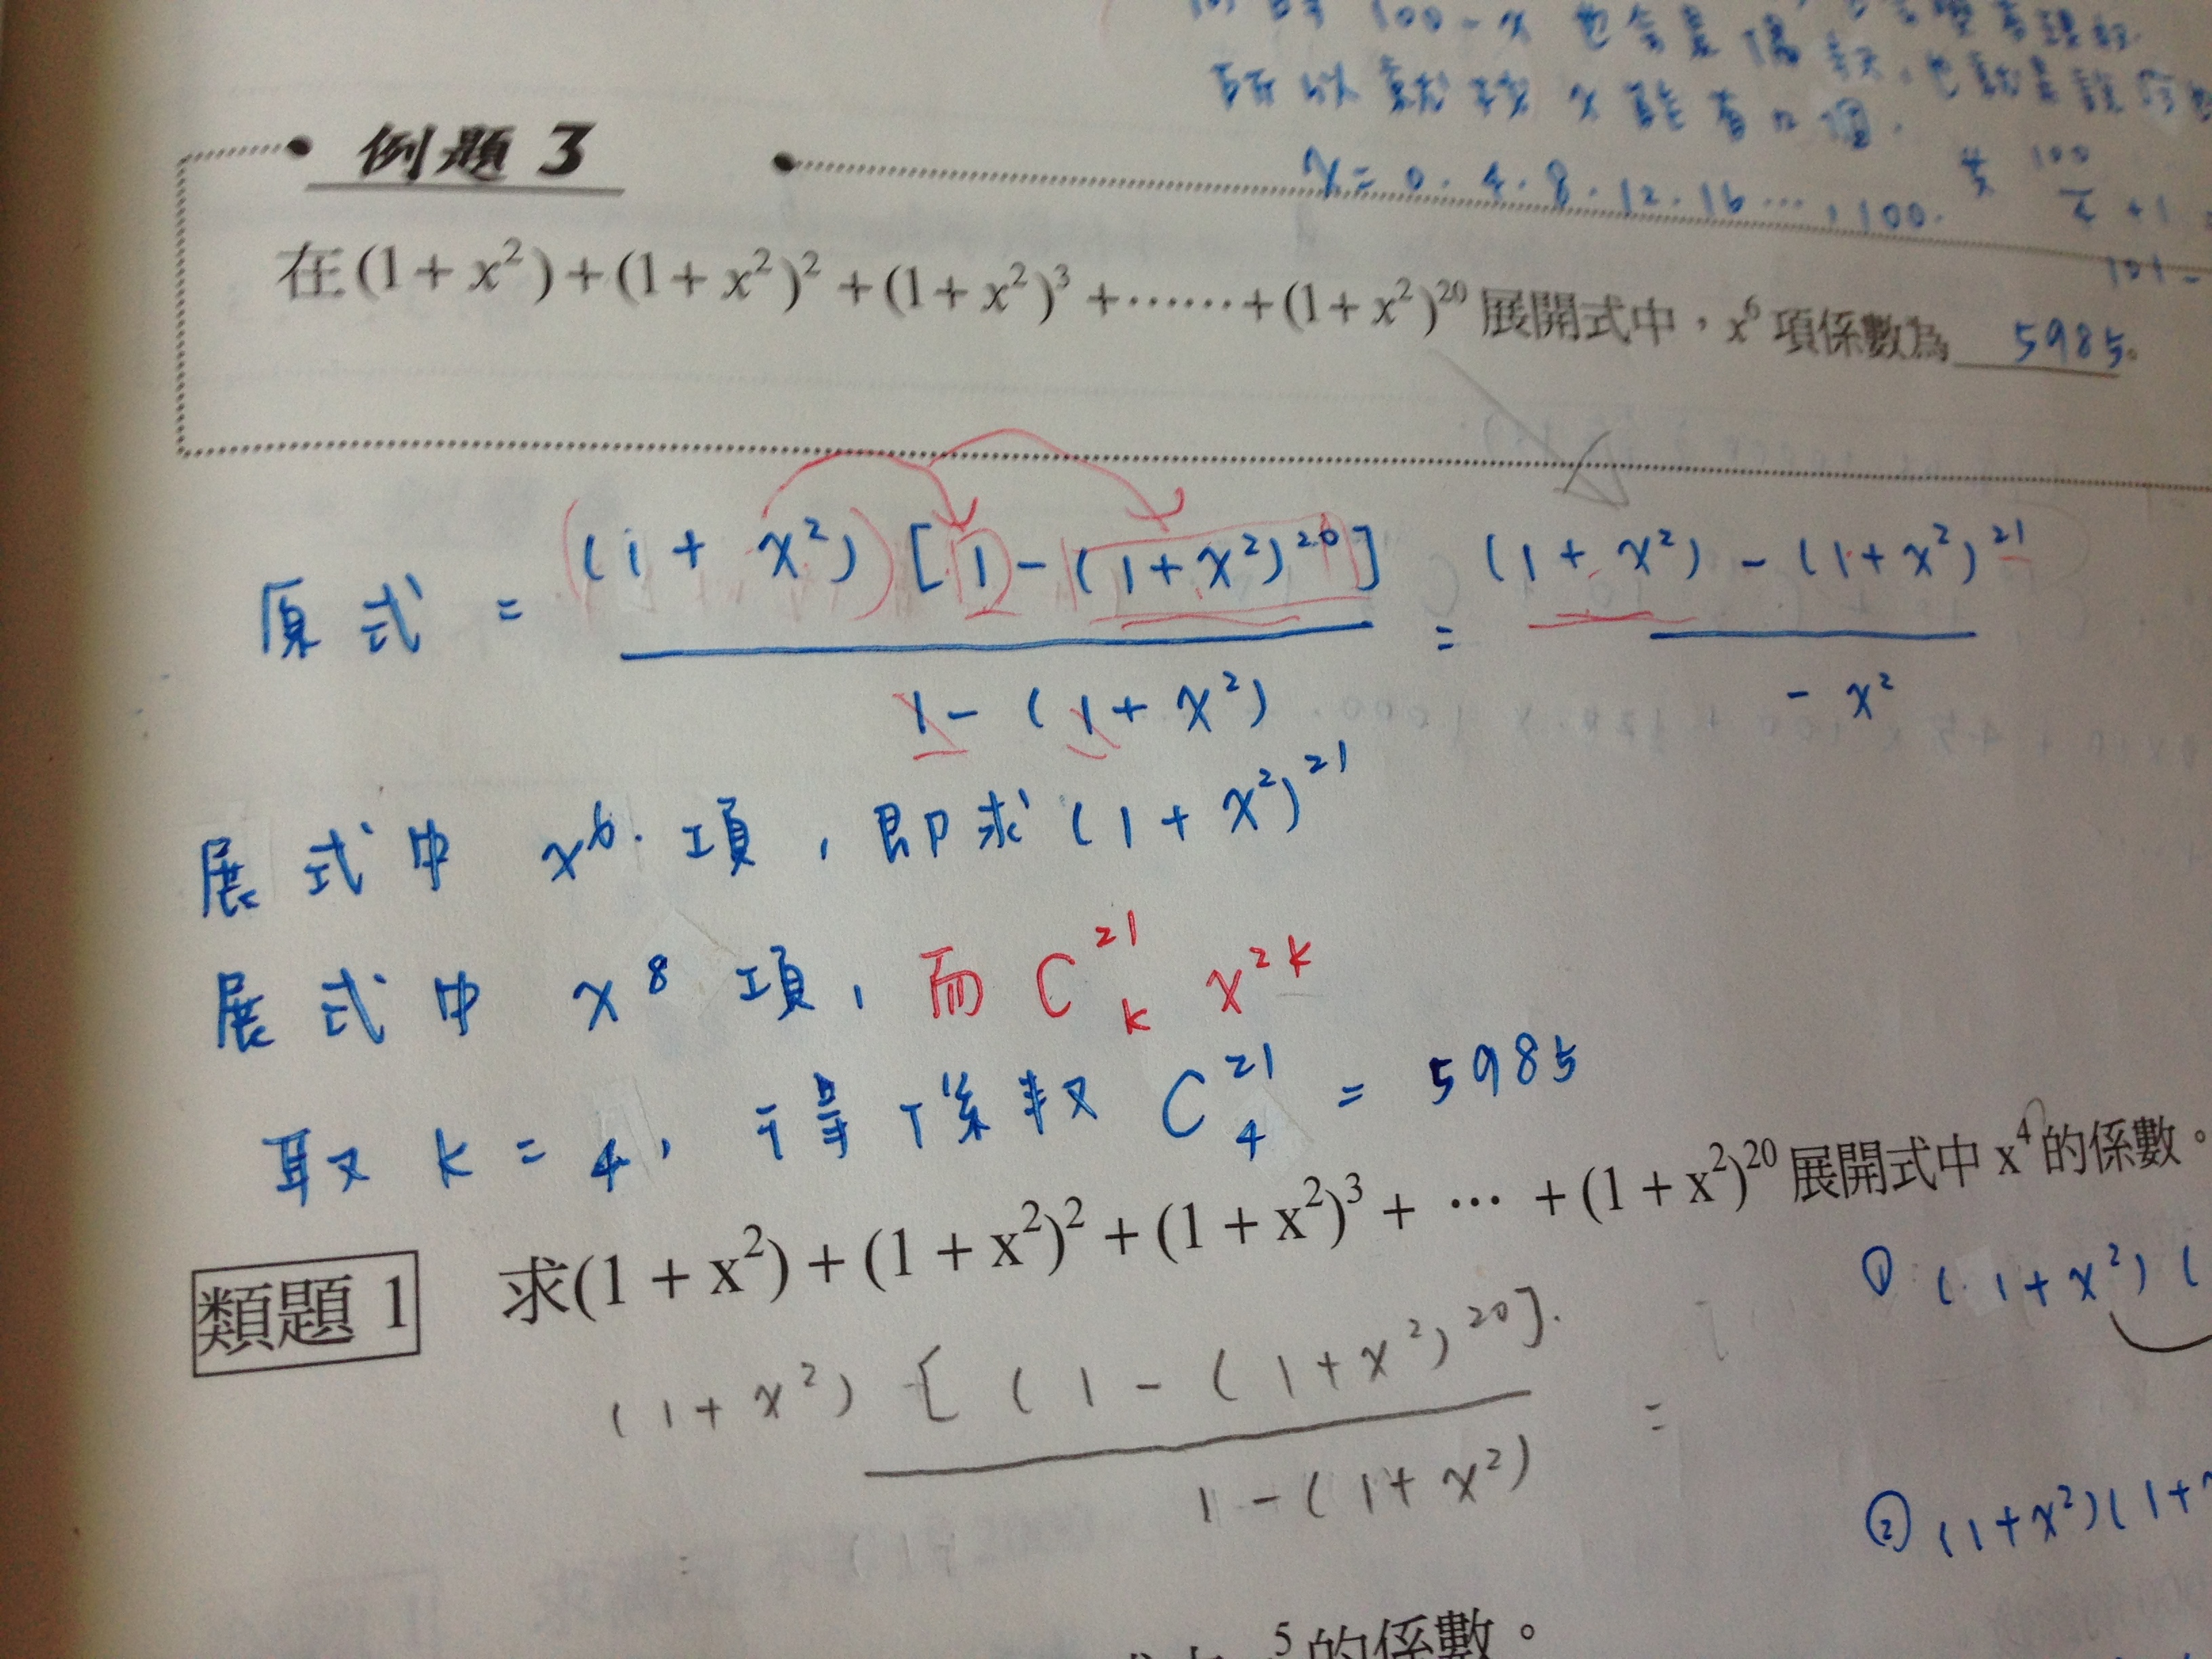 100 - x 也會是偶數
所以就找 x 能有幾個.
x = 0 . 4 . 8 . 12 . 16 ... , 100 . 共 100/4 + 1
101 -
例題 3
在(1 + x²) + (1 + x²)² + (1 + x²)³ + ⋯⋯ + (1 + x²)²⁰ 展開式中，x⁶ 項係數為 5985。
原式 = (1 + x²) [1 - (1 + x²)²⁰] / 1 - (1 + x²) = (1 + x²) - (1 + x²)²¹ / - x²
展式中 x⁶ 項 , 即求 (1 + x²)²¹
展式中 x⁸ 項 , 而 C²¹ₖ x²ᵏ
取 k = 4 , 得係數 C²¹₄ = 5985
類題 1 求(1 + x²) + (1 + x²)² + (1 + x²)³ + ⋯ + (1 + x²)²⁰ 展開式中 x⁴ 的係數。
(1 + x²) [ ( 1 - ( 1 + x² )²⁰ ] . / 1 - ( 1 + x² ) =
① ( 1 + x² ) (
② (1 + x²) ( 1 +
⁵ 的係數。